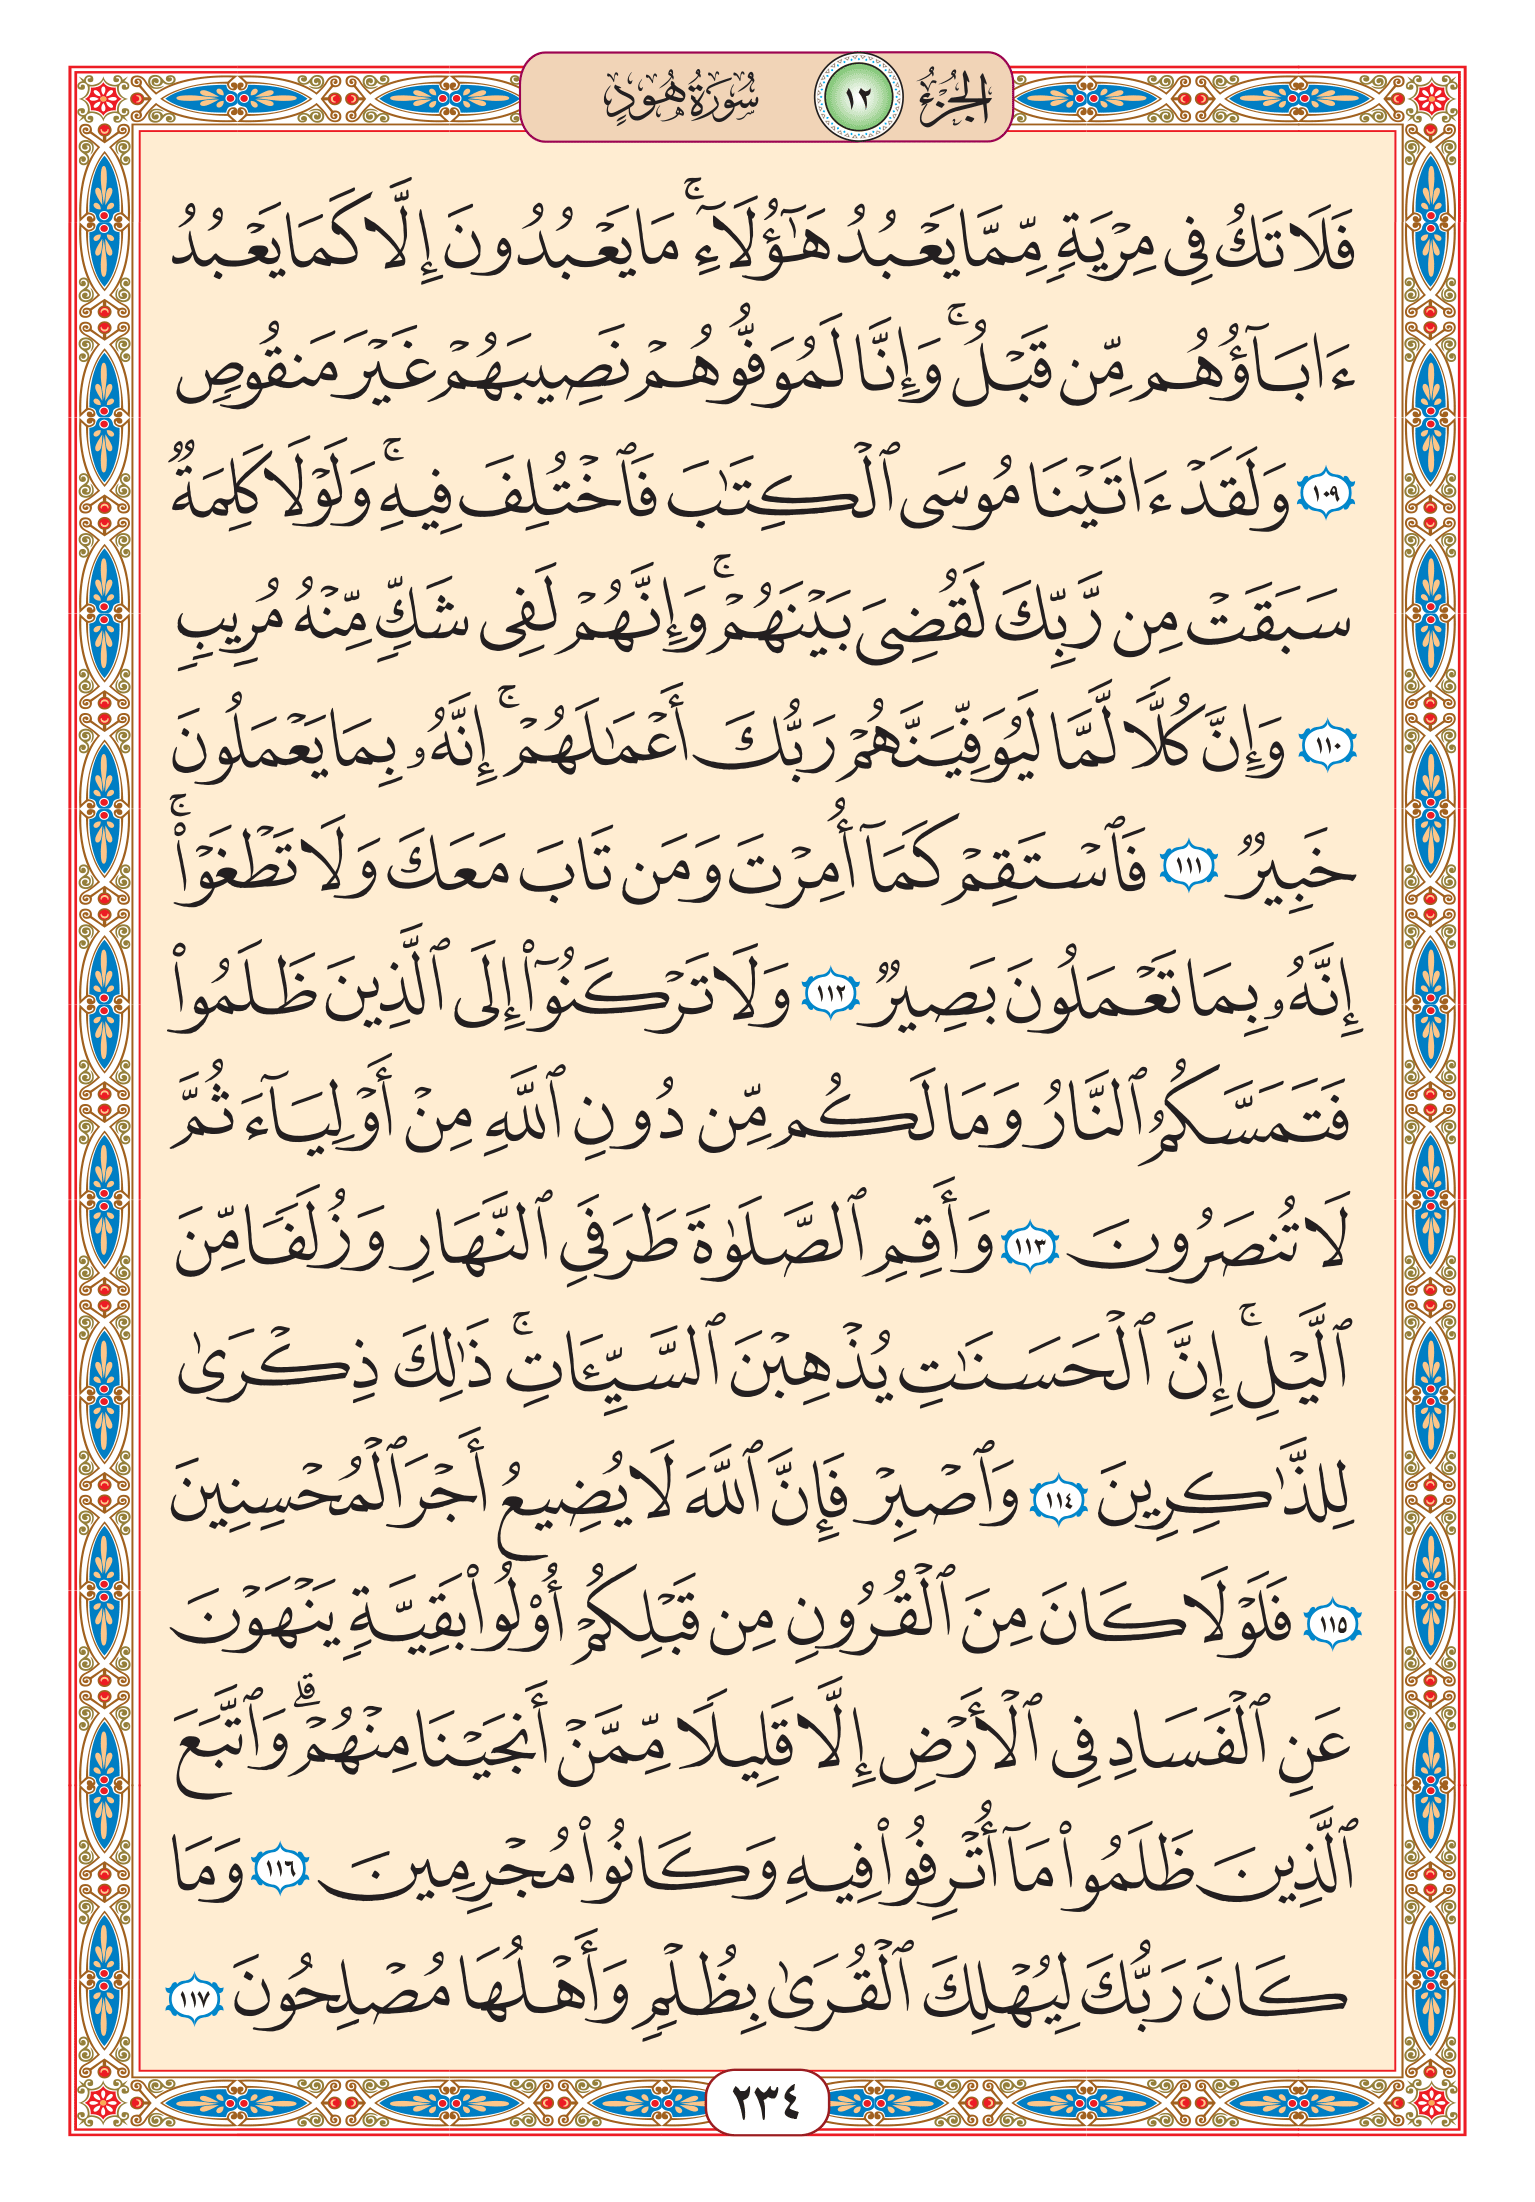 الجزء ١٢ سورة هود
فَلَا تَكُ فِى مِرْيَةٍ مِّمَّا يَعْبُدُ هَٰٓؤُلَآءِ ۚ مَا يَعْبُدُونَ إِلَّا كَمَا يَعْبُدُ
ءَابَآؤُهُم مِّن قَبْلُ ۚ وَإِنَّا لَمُوَفُّوهُمْ نَصِيبَهُمْ غَيْرَ مَنقُوصٍ
١٠٩ وَلَقَدْ ءَاتَيْنَا مُوسَى ٱلْكِتَٰبَ فَٱخْتُلِفَ فِيهِ ۚ وَلَوْلَا كَلِمَةٌ
سَبَقَتْ مِن رَّبِّكَ لَقُضِىَ بَيْنَهُمْ ۚ وَإِنَّهُمْ لَفِى شَكٍّ مِّنْهُ مُرِيبٍ
١١٠ وَإِنَّ كُلًّا لَّمَّا لَيُوَفِّيَنَّهُمْ رَبُّكَ أَعْمَٰلَهُمْ ۚ إِنَّهُۥ بِمَا يَعْمَلُونَ
خَبِيرٌ ١١١ فَٱسْتَقِمْ كَمَآ أُمِرْتَ وَمَن تَابَ مَعَكَ وَلَا تَطْغَوْا۟ ۚ
إِنَّهُۥ بِمَا تَعْمَلُونَ بَصِيرٌ ١١٢ وَلَا تَرْكَنُوٓا۟ إِلَى ٱلَّذِينَ ظَلَمُوا۟
فَتَمَسَّكُمُ ٱلنَّارُ وَمَا لَكُم مِّن دُونِ ٱللَّهِ مِنْ أَوْلِيَآءَ ثُمَّ
لَا تُنصَرُونَ ١١٣ وَأَقِمِ ٱلصَّلَوٰةَ طَرَفَىِ ٱلنَّهَارِ وَزُلَفًا مِّنَ
ٱلَّيْلِ ۚ إِنَّ ٱلْحَسَنَٰتِ يُذْهِبْنَ ٱلسَّيِّـَٔاتِ ۚ ذَٰلِكَ ذِكْرَىٰ
لِلذَّٰكِرِينَ ١١٤ وَٱصْبِرْ فَإِنَّ ٱللَّهَ لَا يُضِيعُ أَجْرَ ٱلْمُحْسِنِينَ
١١٥ فَلَوْلَا كَانَ مِنَ ٱلْقُرُونِ مِن قَبْلِكُمْ أُو۟لُوا۟ بَقِيَّةٍ يَنْهَوْنَ
عَنِ ٱلْفَسَادِ فِى ٱلْأَرْضِ إِلَّا قَلِيلًا مِّمَّنْ أَنجَيْنَا مِنْهُمْ ۗ وَٱتَّبَعَ
ٱلَّذِينَ ظَلَمُوا۟ مَآ أُتْرِفُوا۟ فِيهِ وَكَانُوا۟ مُجْرِمِينَ ١١٦ وَمَا
كَانَ رَبُّكَ لِيُهْلِكَ ٱلْقُرَىٰ بِظُلْمٍ وَأَهْلُهَا مُصْلِحُونَ ١١٧
٢٣٤